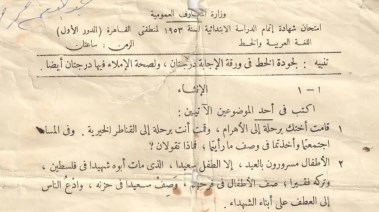 وزارة المعارف العمومية
امتحان شهادة إتمام الدراسة الابتدائية لسنة ١٩٥٣ لمنطقتى القاهرة (الدور الأول)
اللغة العربية والخط الزمن: ساعتان
تنبيه: لجودة الخط فى ورقة الإجابة درجتان، ولصحة الإملاء فيها درجتان أيضا.
١ - الإنشاء
اكتب فى أحد الموضوعين الآتيين:
١ قامت أختك برحلة إلى الأهرام، وقمت أنت برحلة إلى القناطر الخيرية. وفى المساء
اجتمعتما وأخذتما فى وصف ما رأيتما، فماذا تقولان؟
٢ الأطفال مسرورون بالعيد، إلا الطفل سعيدا، الذى مات أبوه شهيدا فى فلسطين،
وتركه فقيرا، صف الأطفال فى فرحهم، وصف سعيدا فى حزنه، وادع الناس
إلى العطف على أبناء الشهداء.